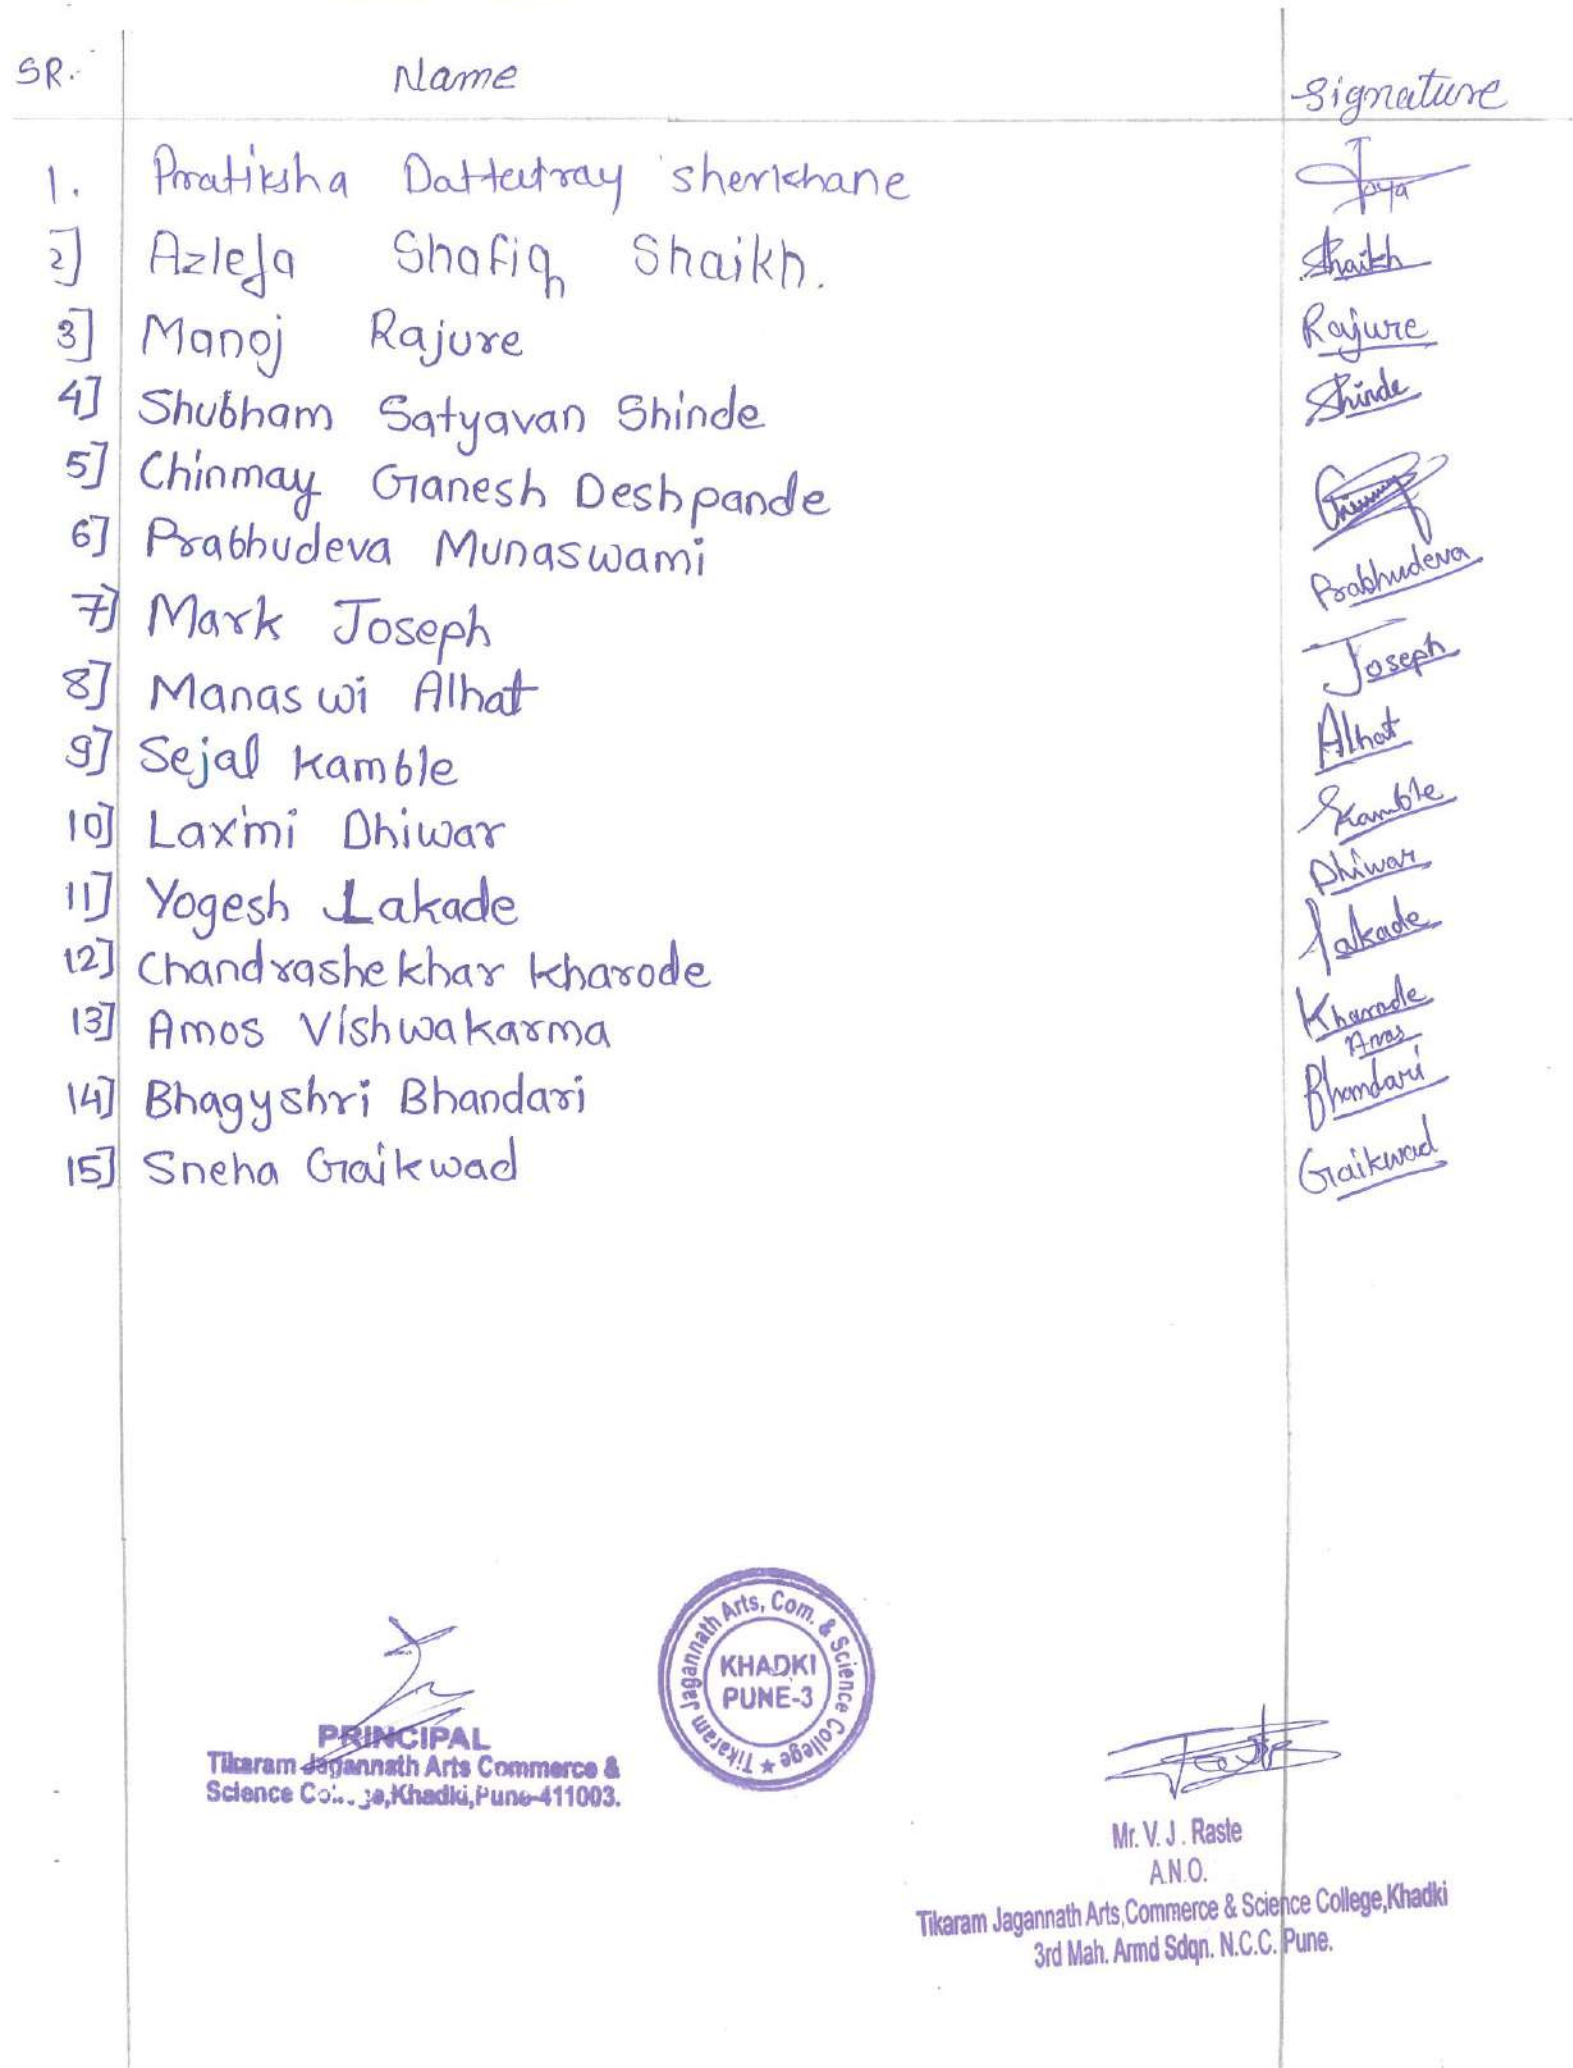 SR. Name Signature
1. Pratiksha Dattatray sherkhane
2] Azleja Shafiq Shaikh. Shaikh
3] Manoj Rajure Rajure
4] Shubham Satyavan Shinde Shinde
5] Chinmay Ganesh Deshpande
6] Prabhudeva Munaswami Prabhudeva
7] Mark Joseph Joseph
8] Manaswi Alhat Alhat
9] Sejal Kamble Kamble
10] Laxmi Dhiwar Dhiwar
11] Yogesh Lakade Lakade
12] Chandrashekhar Kharode Kharode
13] Amos Vishwakarma
14] Bhagyshri Bhandari Bhandari
15] Sneha Gaikwad Gaikwad
Tikaram Jagannath Arts, Com. & Science College ★
KHADKI
PUNE-3
PRINCIPAL
Tikaram Jagannath Arts Commerce &
Science College,Khadki,Pune-411003.
Mr. V. J. Raste
A.N.O.
Tikaram Jagannath Arts,Commerce & Science College,Khadki
3rd Mah. Armd Sdqn. N.C.C. Pune.